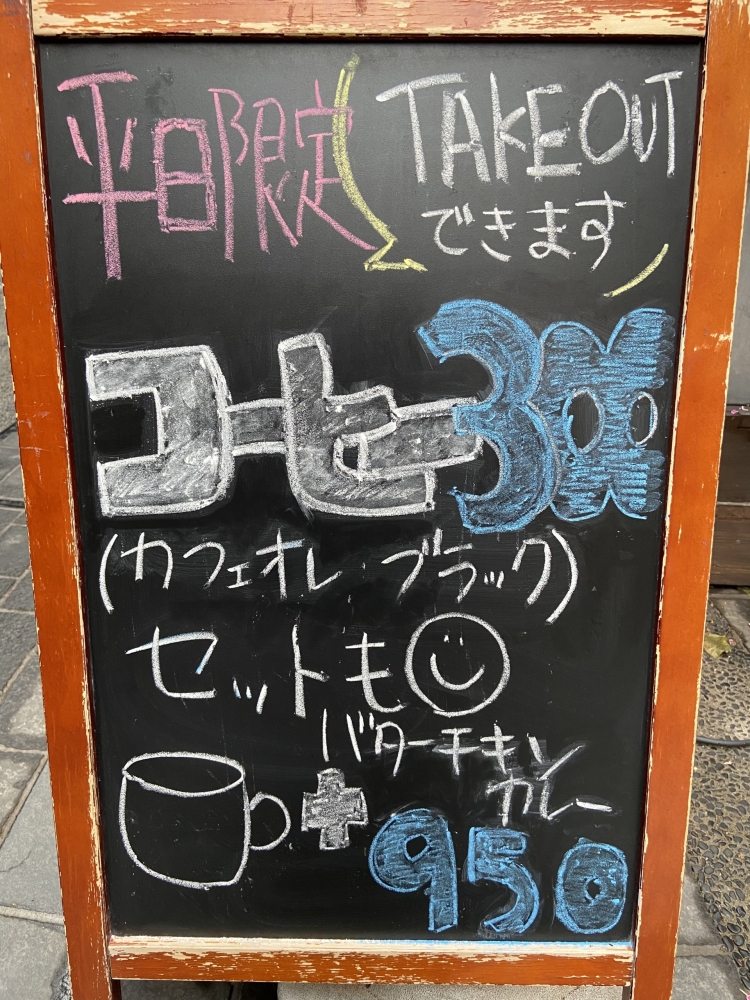 平日限定
TAKEOUT
できます
コーヒー300
(カフェオレ・ブラック)
セットも
バターチキン
カレー
+950